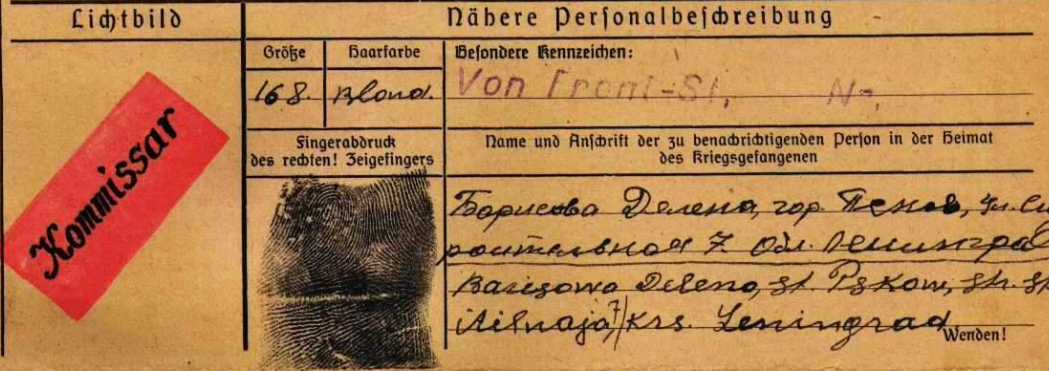 Lichtbild
Nähere Personalbeschreibung
Größe
Haarfarbe
Besondere Kennzeichen:
168.
Blond.
Von Front-St. N-
Kommissar
Fingerabdruck
des rechten! Zeigefingers
Name und Anschrift der zu benachrichtigenden Person in der Heimat
des Kriegsgefangenen
Борисова Делена, гор. Псков, ул. Ст
роительная 7 Обл. Ленинград
Delena, St. Pskow, Str. St
7/ Krs. Leningrad
Wenden!